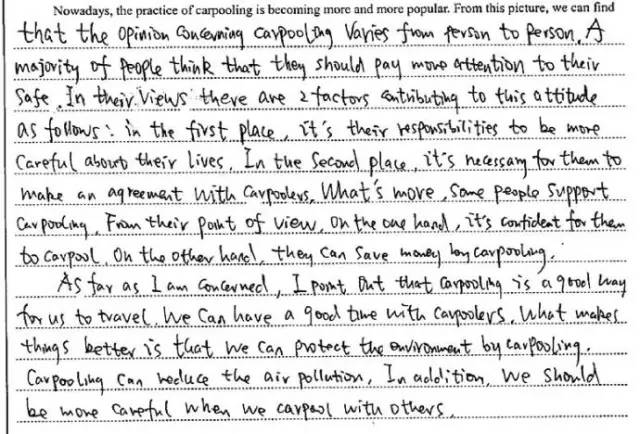 Nowadays, the practice of carpooling is becoming more and more popular. From this picture, we can find
that the opinion concerning carpooling varies from person to person. A
majority of people think that they should pay more attention to their
safe. In their views there are 2 factors contributing to this attitude
as follows: in the first place, it's their responsibilities to be more
careful about their lives. In the second place, it's necessary for them to
make an agreement with carpoolers. What's more, some people support
carpooling. From their point of view, on the one hand, it's confident for them
to carpool. On the other hand, they can save money by carpooling.
As far as I am concerned, I point out that carpooling is a good way
for us to travel. We can have a good time with carpoolers. What makes
things better is that we can protect the environment by carpooling.
Carpooling can reduce the air pollution. In addition, we should
be more careful when we carpool with others.